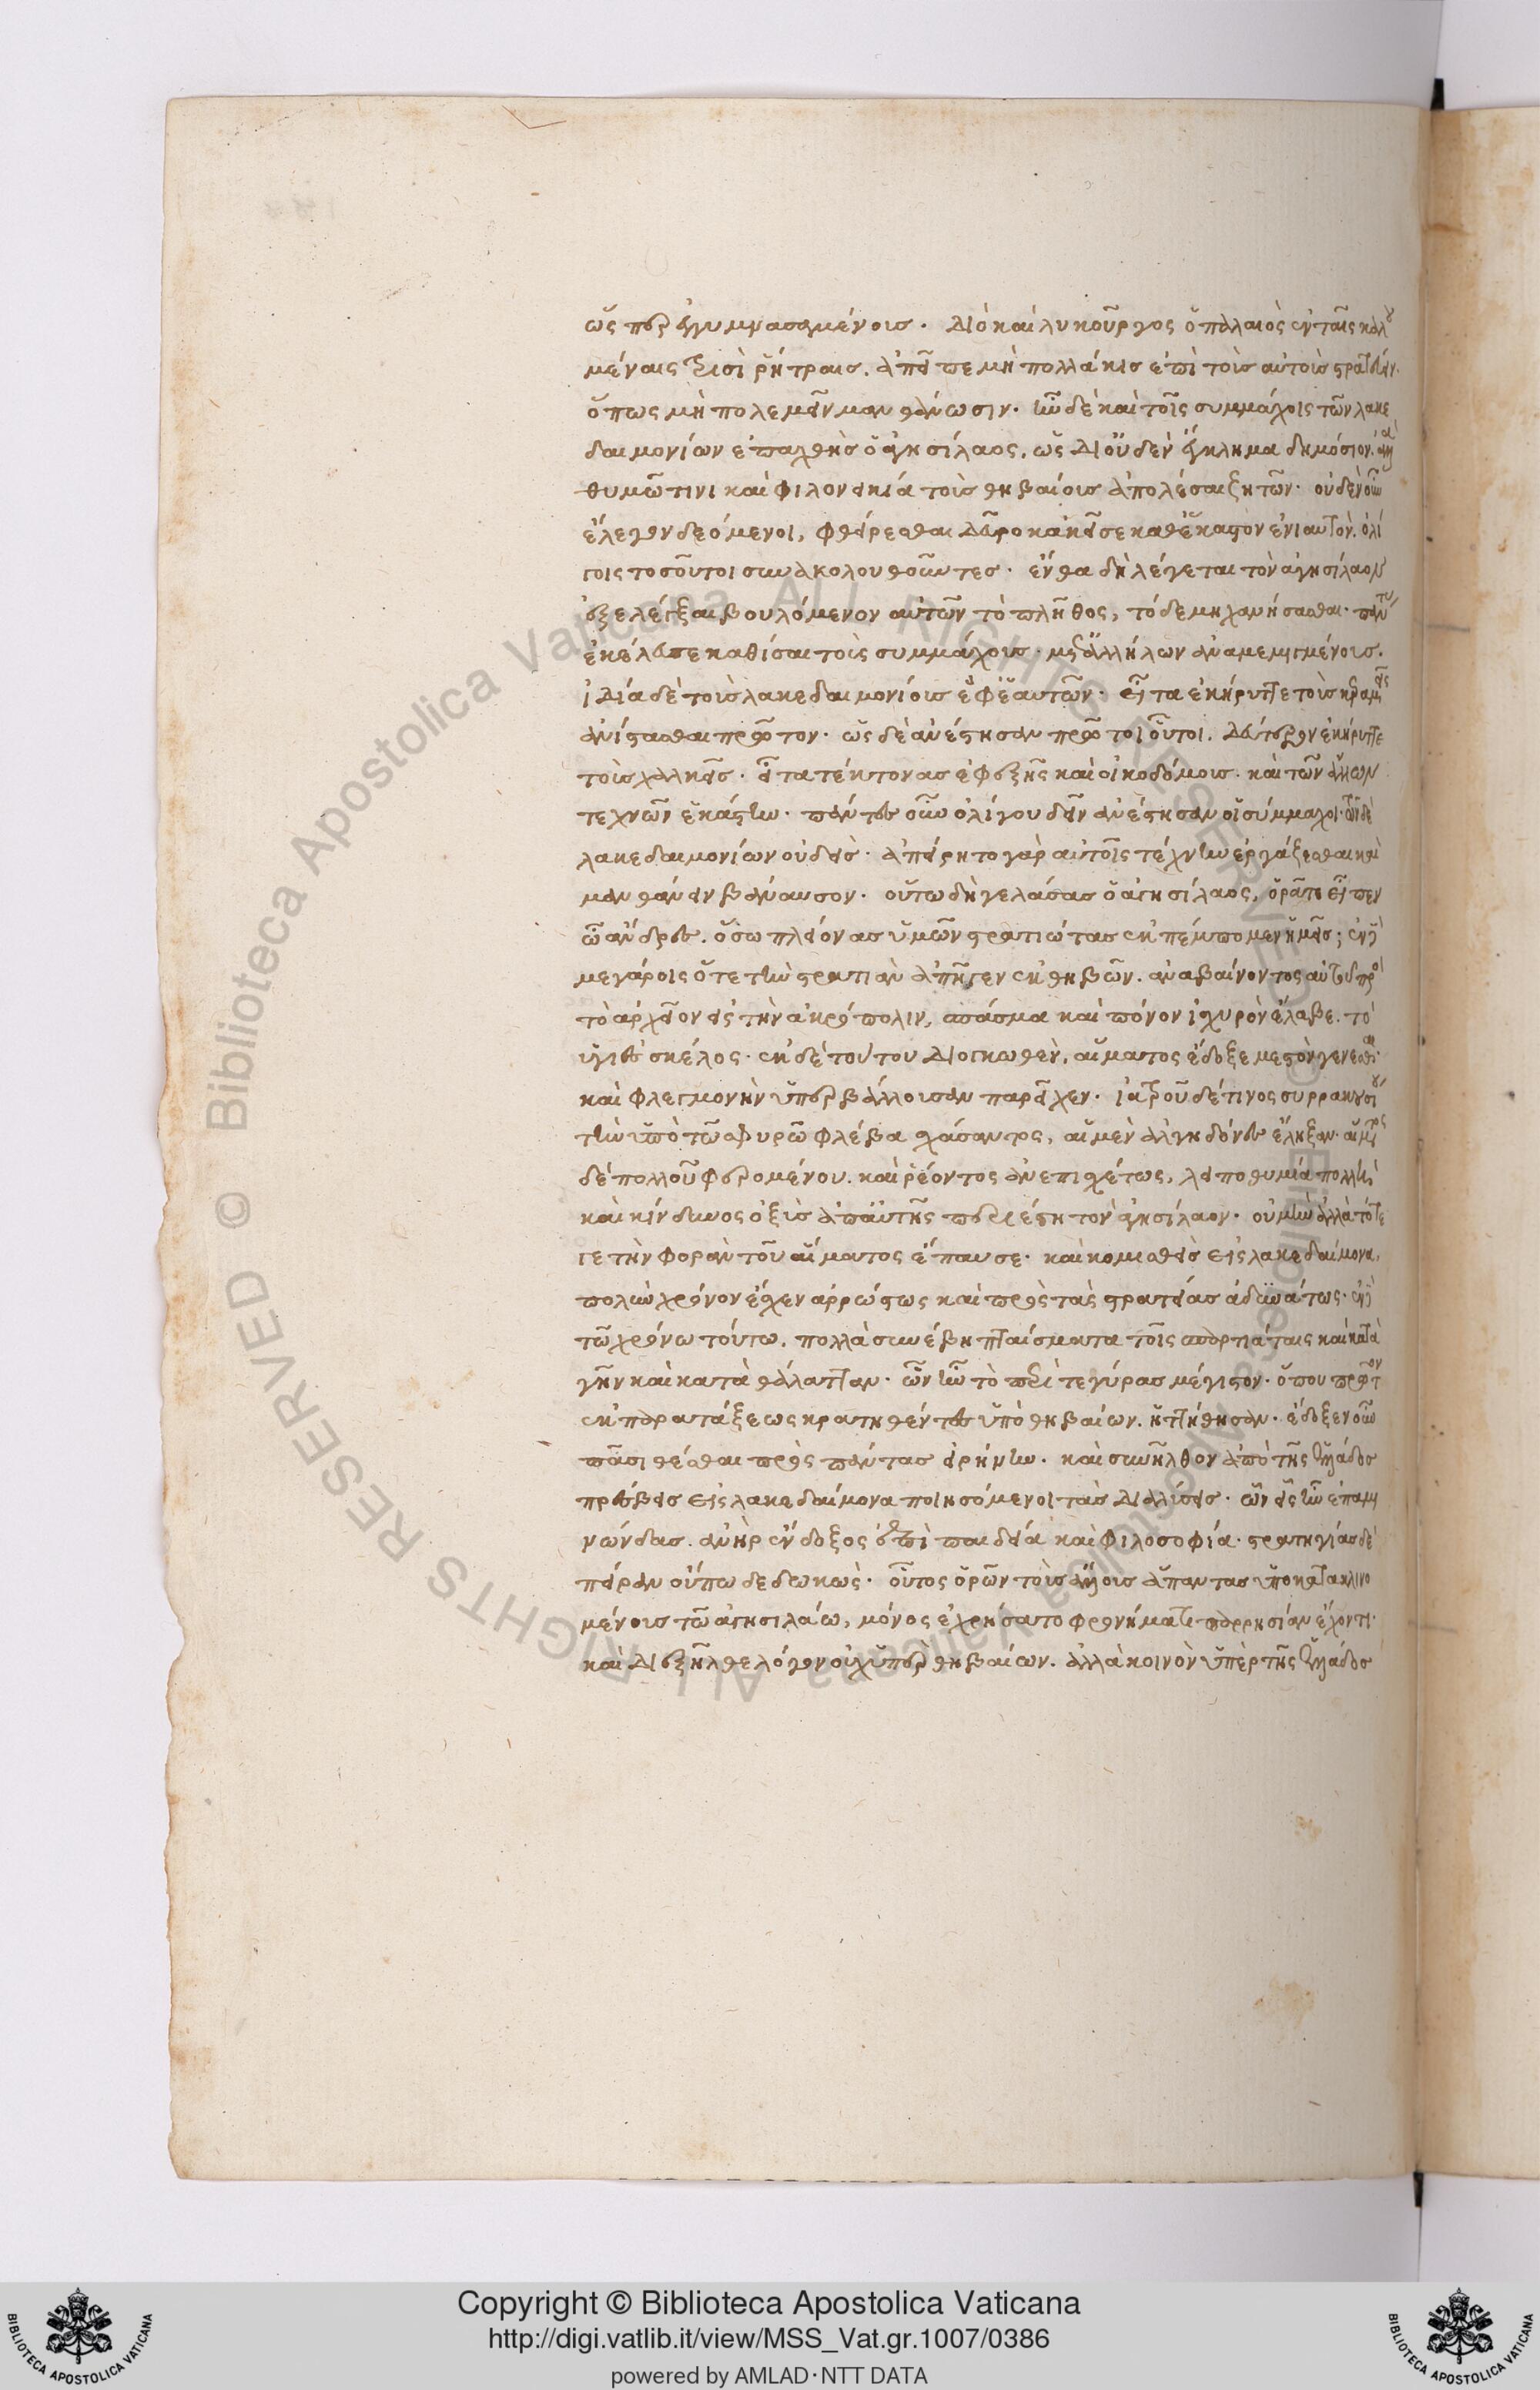 ὥσπερ ἐγγυμνασαμένοις. Διὸ καὶ λυκοῦργος ὁ παλαιὸς ἐν ταῖς καλου
μέναις τρισὶ ῥήτραις. ἀπεῖπε μὴ πολλάκις ἐπὶ τοὺς αὐτοὺς στρατεύειν.
ὅπως μὴ πολεμεῖν μανθάνωσιν. ἦν δὲ καὶ τοῖς συμμάχοις τῶν λακε
δαιμονίων ἐπαχθὴς ὁ ἀγησίλαος, ὡς δι' οὐδὲν ἔγκλημα δημόσιον. ἀλλὰ
θυμῶ τινι καὶ φιλονεικία τοὺς θηβαίους ἀπολέσαι ζητῶν. οὐδὲν οὖν
ἔλεγον δεόμενοι, φθείρεσθαι δεῦρο κἀκεῖσε καθ' ἕκαστον ἐνιαυτόν. ὀλί
γοις τοσοῦτοι συνακολουθοῦντες. ἔνθα δὴ λέγεται τὸν ἀγησίλαον
ἐξελέγξαι βουλόμενον αὐτῶν τὸ πλῆθος, τόδε μηχανήσασθαι. πάντας
ἐκέλευσε καθίσαι τοὺς συμμάχους. μετ' ἀλλήλων ἀναμεμιγμένους.
ἰδία δὲ τοὺς λακεδαιμονίους ἐφ' ἑαυτῶν. εἶτα ἐκήρυττε τοὺς κεραμεῖς
ἀνίστασθαι πρῶτον. ὡς δὲ ἀνέστησαν πρῶτοι οὗτοι. δεύτερον ἐκήρυττε
τοὺς χαλκεῖς. εἶτα τέκτονας ἐφεξῆς καὶ οἰκοδόμους. καὶ τῶν ἄλλων
τεχνῶν ἑκάστην. πάντες οὖν ὀλίγου δεῖν ἀνέστησαν οἱ σύμμαχοι. τῶν δὲ
λακεδαιμονίων οὐδείς. ἀπείρητο γὰρ αὐτοῖς τέχνην ἐργάζεσθαι καὶ
μανθάνειν βάναυσον. οὕτω δὴ γελάσας ὁ ἀγησίλαος, ὁρᾶτε εἶπεν
ὦ ἄνδρες. ὅσω πλείονας ὑμῶν στρατιώτας ἐκπέμπομεν ἡμεῖς; ἐν δὲ
μεγάροις ὅτε τὴν στρατιὰν ἀπῆγεν ἐκ θηβῶν. ἀναβαίνοντος αὐτοῦ πρὸς
τὸ ἀρχεῖον εἰς τὴν ἀκρόπολιν, σπάσμα καὶ πόνον ἰσχυρὸν ἔλαβε. τὸ
ὑγιὲς σκέλος. ἐκ δὲ τούτου διογκωθὲν, αἵματος ἔδοξε μεστὸν γενέσθαι.
καὶ φλεγμονὴν ὑπερβάλλουσαν παρεῖχεν. ἰατροῦ δέ τινος συρρακουσίου
τὴν ὑπὸ τῶ σφυρῶ φλέβα σχάσαντος, αἱ μὲν ἀλγηδόνες ἔληξαν. αἵματος
δὲ πολλοῦ φερομένου. καὶ ῥέοντος ἀνεπισχέτως, λειποθυμία πολλὴ
καὶ κίνδυνος ὀξὺς ἀπ' αὐτῆς περιέστη τὸν ἀγησίλαον. οὐ μὴν ἀλλὰ τότε
γε τὴν φορὰν τοῦ αἵματος ἔπαυσε. καὶ κομισθεὶς εἰς λακεδαίμονα,
πολὺν χρόνον ἔσχεν ἀρρώστως καὶ πρὸς τὰς στρατείας ἀδυνάτως. ἐν δὲ
τῶ χρόνω τούτω. πολλὰ συνέβη πταίσματα τοῖς σπαρτιάταις καὶ κατὰ
γῆν καὶ κατὰ θάλατταν. ὧν ἦν τὸ περὶ τεγύρας μέγιστον. ὅπου πρῶτον
ἐκ παρατάξεως κρατηθέντες ὑπὸ θηβαίων. ἡττήθησαν. ἔδοξεν οὖν
πᾶσι θέσθαι πρὸς πάντας εἰρήνην. καὶ συνῆλθον ἀπὸ τῆς ἑλλάδος
πρέσβεις εἰς λακεδαίμονα ποιησόμενοι τὰς διαλύσεις. ὧν εἷς ἦν ἐπαμι
νώνδας. ἀνὴρ ἔνδοξος ἐπὶ παιδεία καὶ φιλοσοφία. στρατηγίας δὲ
πεῖραν οὔπω δεδωκώς. οὗτος ὁρῶν τοὺς ἄλλους ἅπαντας ὑποκατακλινο
μένους τῶ ἀγησιλάω, μόνος ἐχρήσατο φρονήματι παρρησίαν ἔχοντι.
καὶ διεξῆλθε λόγον οὐχ ὑπὲρ θηβαίων. ἀλλὰ κοινὸν ὑπὲρ τῆς ἑλλάδος
Copyright © Biblioteca Apostolica Vaticana
http://digi.vatlib.it/view/MSS_Vat.gr.1007/0386
powered by AMLAD·NTT DATA